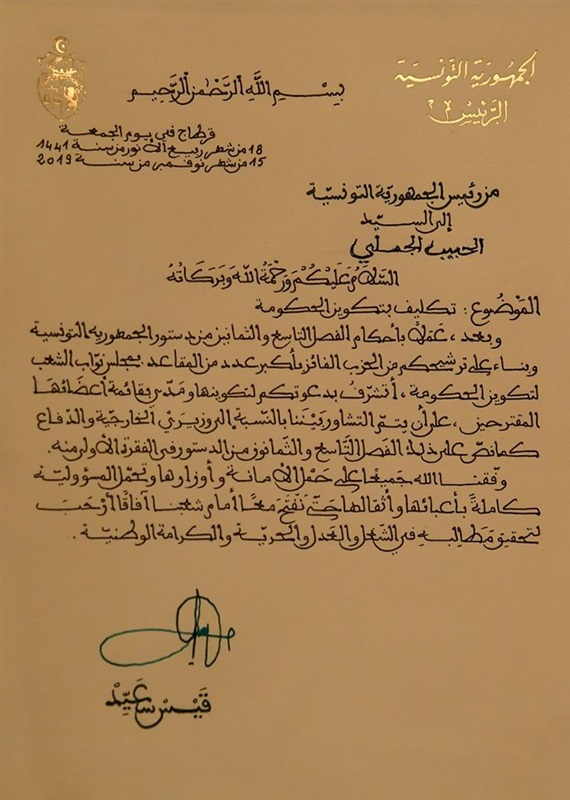 الجمهورية التونسية
الرئيس
بسم الله الرحمن الرحيم
قرطاج في يوم الجمعة
18 من شهر ربيع الأنور من سنة 1441
15 من شهر نوفمبر من سنة 2019
من رئيس الجمهورية التونسيّة
إلى السيّد
الحبيب الجملي
السَّلَامُ عَلَيْكُمْ وَرَحْمَةُ اللَّهِ وَبَرَكَاتُهُ
المَوْضُوع: تكليف بتكوين الحكومة
وبعد، عَمَلًا بأحكام الفصل التاسع والثمانين من دستور الجمهورية التونسية
وبناء على ترشيحكم من الحزب الفائز بأكبر عدد من المقاعد بمجلس نوّاب الشعب
لتكوين الحكومة، أتشرّف بدعوتكم لتكوينها ومدّي بقائمة أعضائها
المقترحين، على أن يتمّ التشاور بيننا بالنّسبة إلى وزيريْ الخارجية والدّفاع
كما نصّ على ذلك الفصل التّاسع والثّمانون من الدستور في الفقرة الأولى منه.
وفّقنا الله جَميعًا على حَمْل الأمانة وأوزارها وتحمّل المسؤوليّة
كاملةً بأعبائها وأثقالها حَتّى نَفتحَ معًا أمام شعبنا آفاقًا أرْحَبَ
لتحقيق مَطَالبه في الشّغل والعَدل والحريّة والكرامة الوطنيّة.
قَيْسْ سَعَيِّدْ